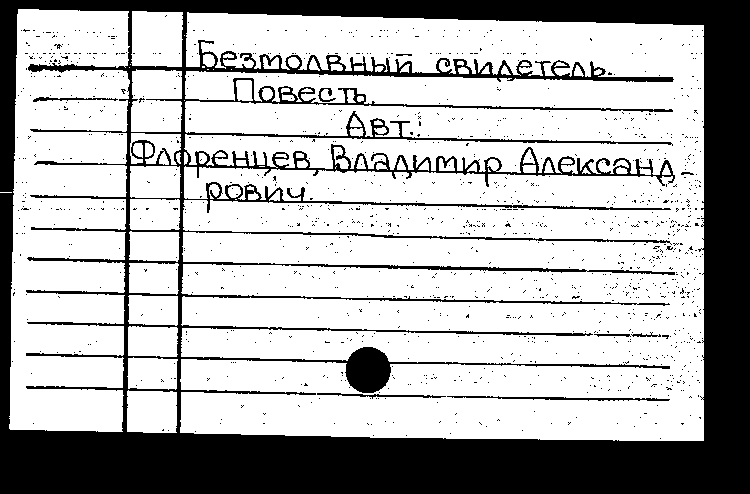 Безмолвный свидетель.
Повесть.
Авт.:
Флоренцев, Владимир Александ-
рович.